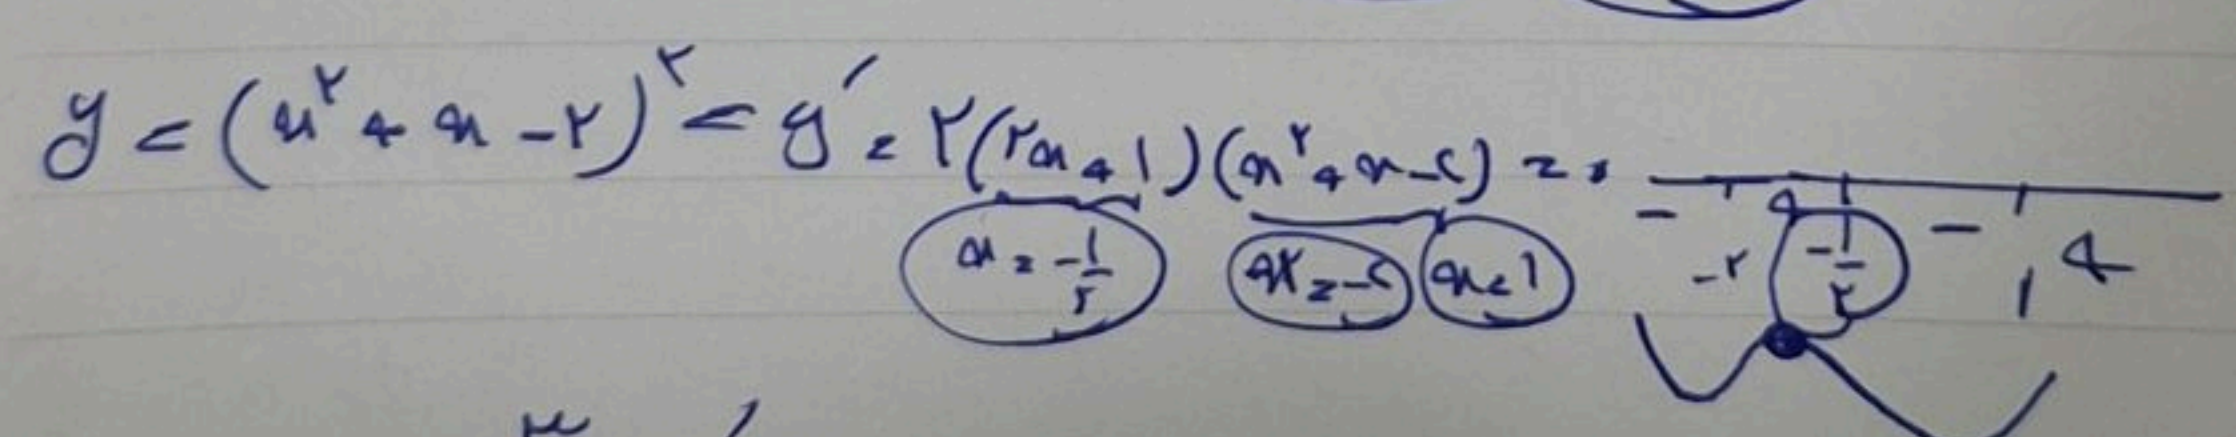 y = (x^۲ + x - ۲)^۲ = y' = ۲(۲x + ۱)(x^۲ + x - ۲) = ۰
x = -۱/۲ x = -۲ x = ۱
- + - +
-۲ -۱/۲ ۱